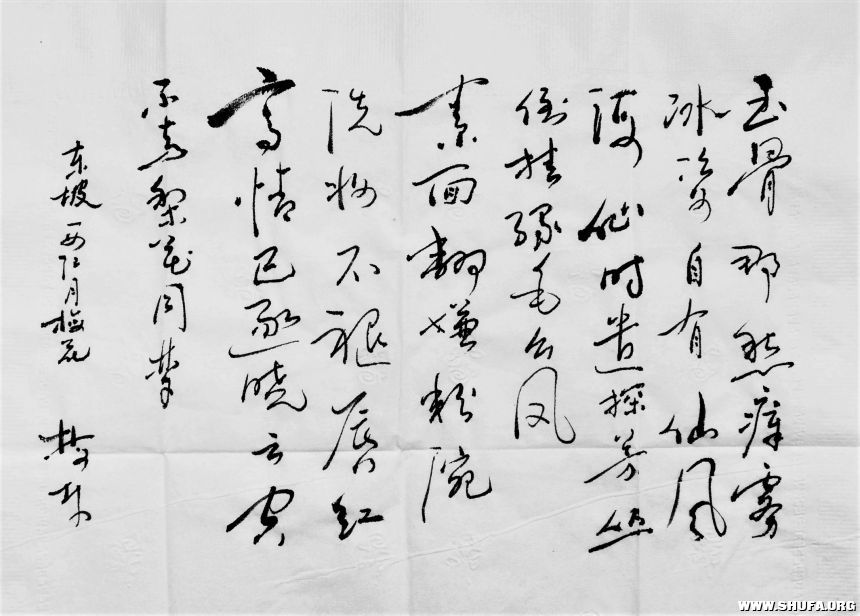 玉骨那愁瘴雾
冰姿自有仙风
海仙时遣探芳丛
倒挂绿毛幺凤
素面翻嫌粉涴
洗妆不褪唇红
高情已逐晓云空
不与梨花同梦
东坡西江月梅花
WWW.SHUFA.ORG